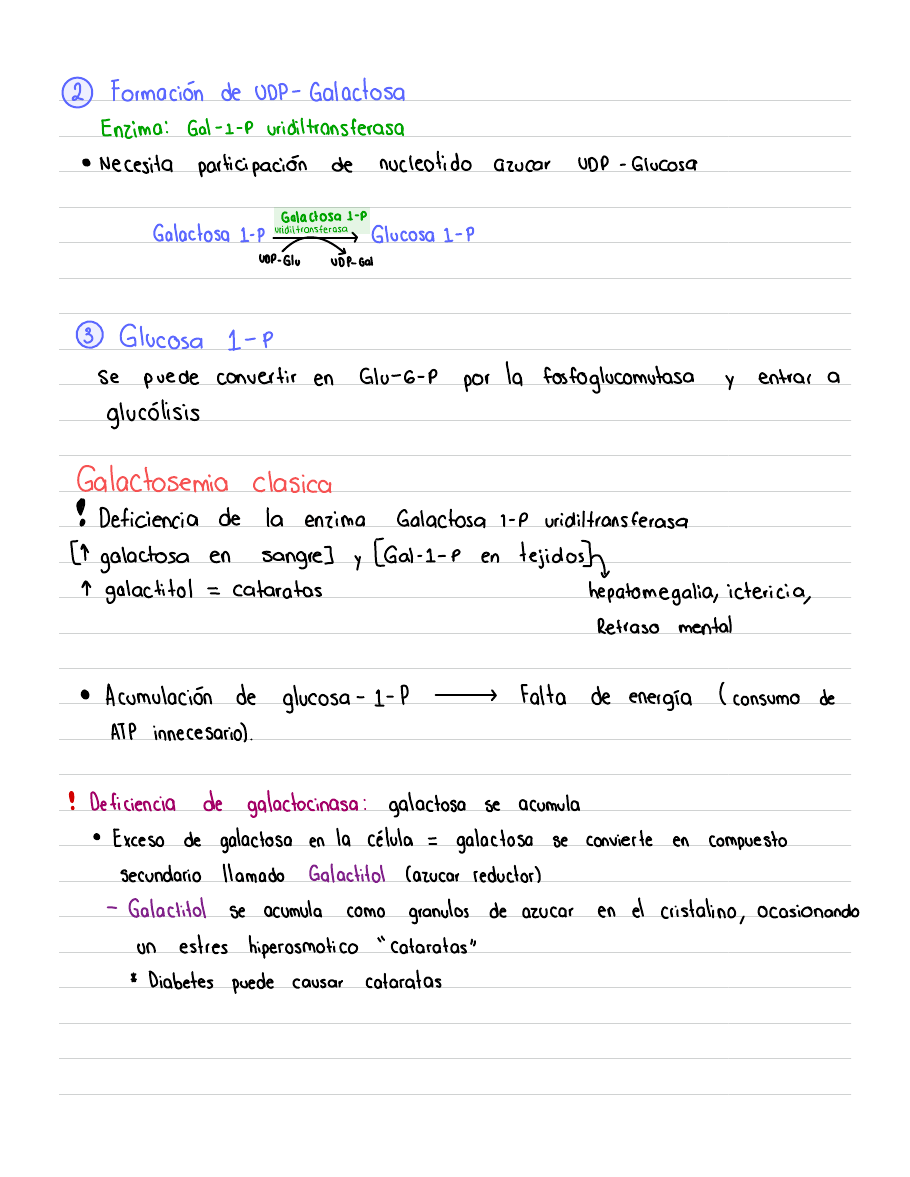 2 Formación de UDP-Galactosa
Enzima: Gal-1-P uridiltransferasa
• Necesita participación de nucleotido azucar UDP-Glucosa
Galactosa 1-P
uridiltransferasa
Galactosa 1-P → Glucosa 1-P
UDP-Glu UDP-Gal
3 Glucosa 1-P
Se puede convertir en Glu-6-P por la fosfoglucomutasa y entrar a
glucólisis
Galactosemia clasica
! Deficiencia de la enzima Galactosa 1-P uridiltransferasa
[↑ galactosa en sangre] y [Gal-1-P en tejidos]
↑ galactitol = cataratas
hepatomegalia, ictericia,
Retraso mental
• Acumulación de glucosa-1-P → Falta de energía (consumo de
ATP innecesario).
! Deficiencia de galactocinasa: galactosa se acumula
• Exceso de galactosa en la célula = galactosa se convierte en compuesto
secundario llamado Galactitol (azucar reductor)
- Galactitol se acumula como granulos de azucar en el cristalino, ocasionando
un estres hiperosmotico "cataratas"
* Diabetes puede causar cataratas